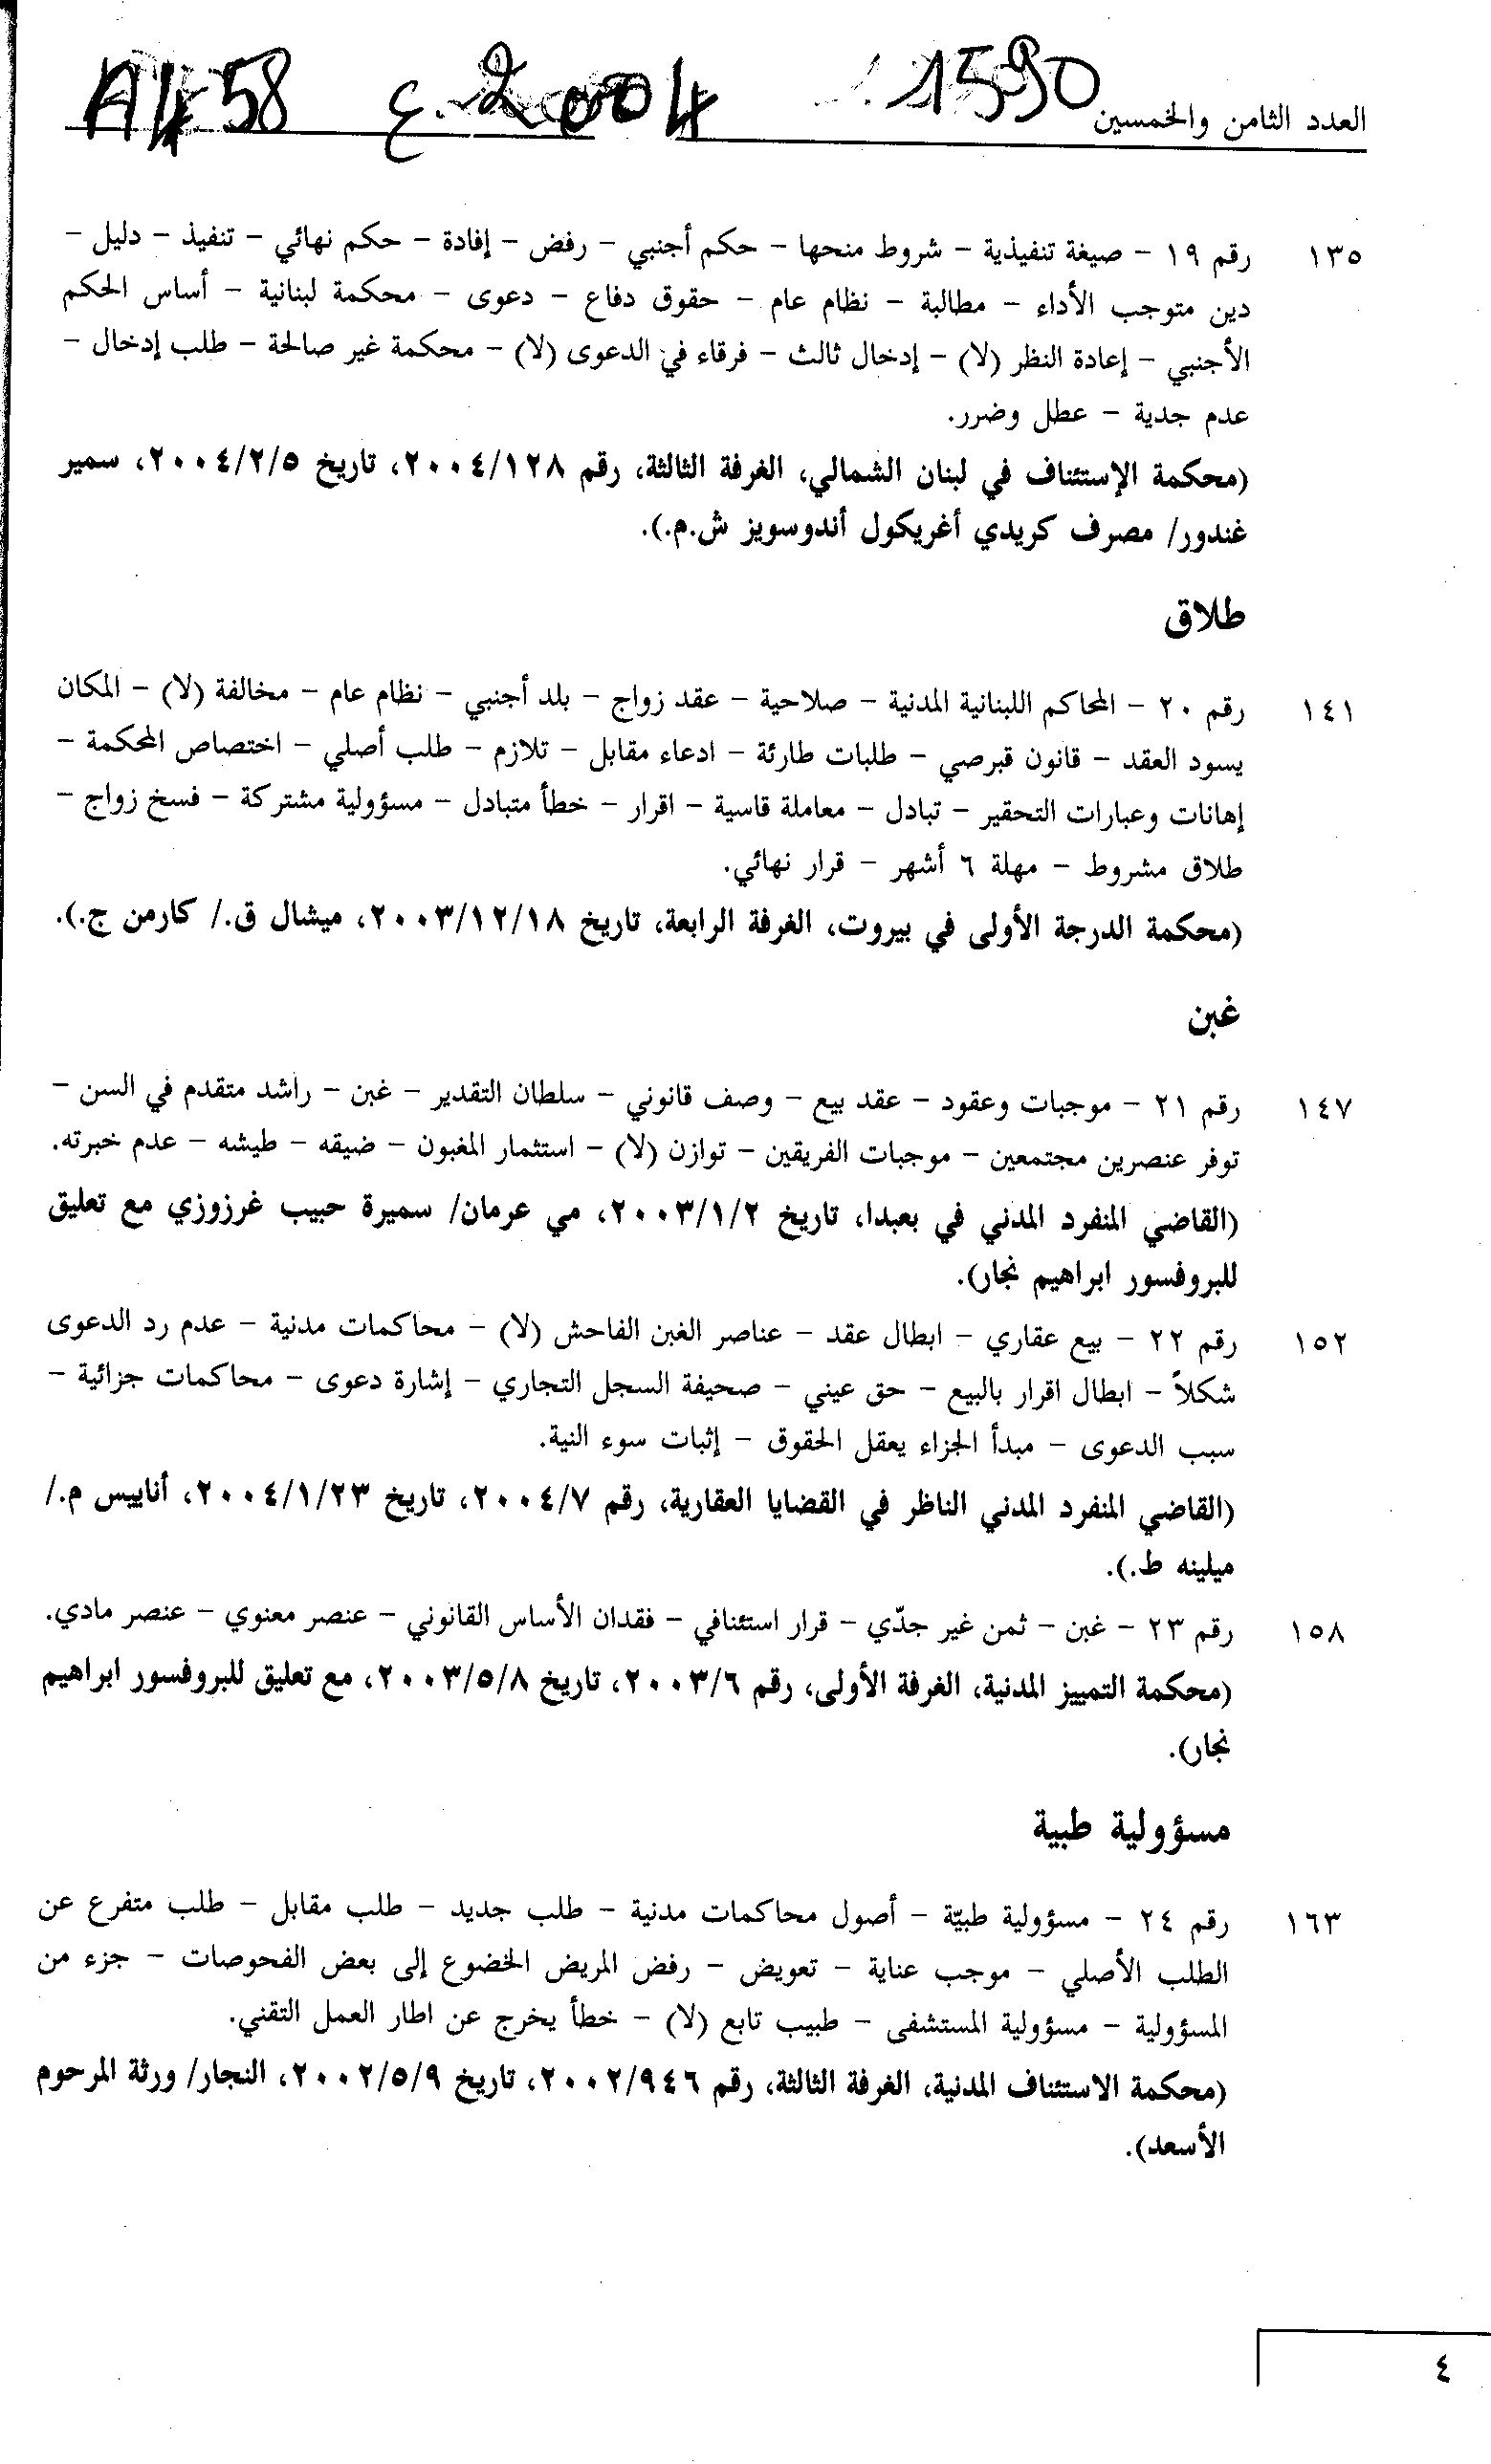 AH 58 ع. 2004 1590
العدد الثامن والخمسين
١٣٥ رقم ١٩ - صيغة تنفيذية - شروط منحها - حكم أجنبي - رفض - إفادة - حكم نهائي - تنفيذ - دليل -
دين متوجب الأداء - مطالبة - نظام عام - حقوق دفاع - دعوى - محكمة لبنانية - أساس الحكم
الأجنبي - إعادة النظر (لا) - إدخال ثالث - فرقاء في الدعوى (لا) - محكمة غير صالحة - طلب إدخال -
عدم جدية - عطل وضرر.
(محكمة الإستئناف في لبنان الشمالي، الغرفة الثالثة، رقم ٢٠٠٤/١٢٨، تاريخ ٢٠٠٤/٢/٥، سمير
غندور/ مصرف كريدي أغريكول أندوسويز ش.م.).
طلاق
١٤١ رقم ٢٠ - المحاكم اللبنانية المدنية - صلاحية - عقد زواج - بلد أجنبي - نظام عام - مخالفة (لا) - المكان
يسود العقد - قانون قبرصي - طلبات طارئة - ادعاء مقابل - تلازم - طلب أصلي - اختصاص المحكمة -
إهانات وعبارات التحقير - تبادل - معاملة قاسية - اقرار - خطأ متبادل - مسؤولية مشتركة - فسخ زواج -
طلاق مشروط - مهلة ٦ أشهر - قرار نهائي.
(محكمة الدرجة الأولى في بيروت، الغرفة الرابعة، تاريخ ٢٠٠٣/١٢/١٨، ميشال ق./ كارمن ج.).
غبن
١٤٧ رقم ٢١ - موجبات وعقود - عقد بيع - وصف قانوني - سلطان التقدير - غبن - راشد متقدم في السن -
توفر عنصرين مجتمعين - موجبات الفريقين - توازن (لا) - استثمار المغبون - ضيقه - طيشه - عدم خبرته.
(القاضي المنفرد المدني في بعبدا، تاريخ ٢٠٠٣/١/٢، مي عرمان/ سميرة حبيب غرزوزي مع تعليق
للبروفسور ابراهيم نجار).
١٥٢ رقم ٢٢ - بيع عقاري - ابطال عقد - عناصر الغبن الفاحش (لا) - محاكمات مدنية - عدم رد الدعوى
شكلاً - ابطال اقرار بالبيع - حق عيني - صحيفة السجل التجاري - إشارة دعوى - محاكمات جزائية -
سبب الدعوى - مبدأ الجزاء يعقل الحقوق - إثبات سوء النية.
(القاضي المنفرد المدني الناظر في القضايا العقارية، رقم ٢٠٠٤/٧، تاريخ ٢٠٠٤/١/٢٣، أناييس م./
ميلينه ط.).
١٥٨ رقم ٢٣ - غبن - ثمن غير جدّي - قرار استئنافي - فقدان الأساس القانوني - عنصر معنوي - عنصر مادي.
(محكمة التمييز المدنية، الغرفة الأولى، رقم ٢٠٠٣/٦، تاريخ ٢٠٠٣/٥/٨، مع تعليق للبروفسور ابراهيم
نجار).
مسؤولية طبية
١٦٣ رقم ٢٤ - مسؤولية طبيّة - أصول محاكمات مدنية - طلب جديد - طلب مقابل - طلب متفرع عن
الطلب الأصلي - موجب عناية - تعويض - رفض المريض الخضوع إلى بعض الفحوصات - جزء من
المسؤولية - مسؤولية المستشفى - طبيب تابع (لا) - خطأ يخرج عن اطار العمل التقني.
(محكمة الاستئناف المدنية، الغرفة الثالثة، رقم ٢٠٠٢/٩٤٦، تاريخ ٢٠٠٢/٥/٩، النجار/ ورثة المرحوم
الأسعد).
٤